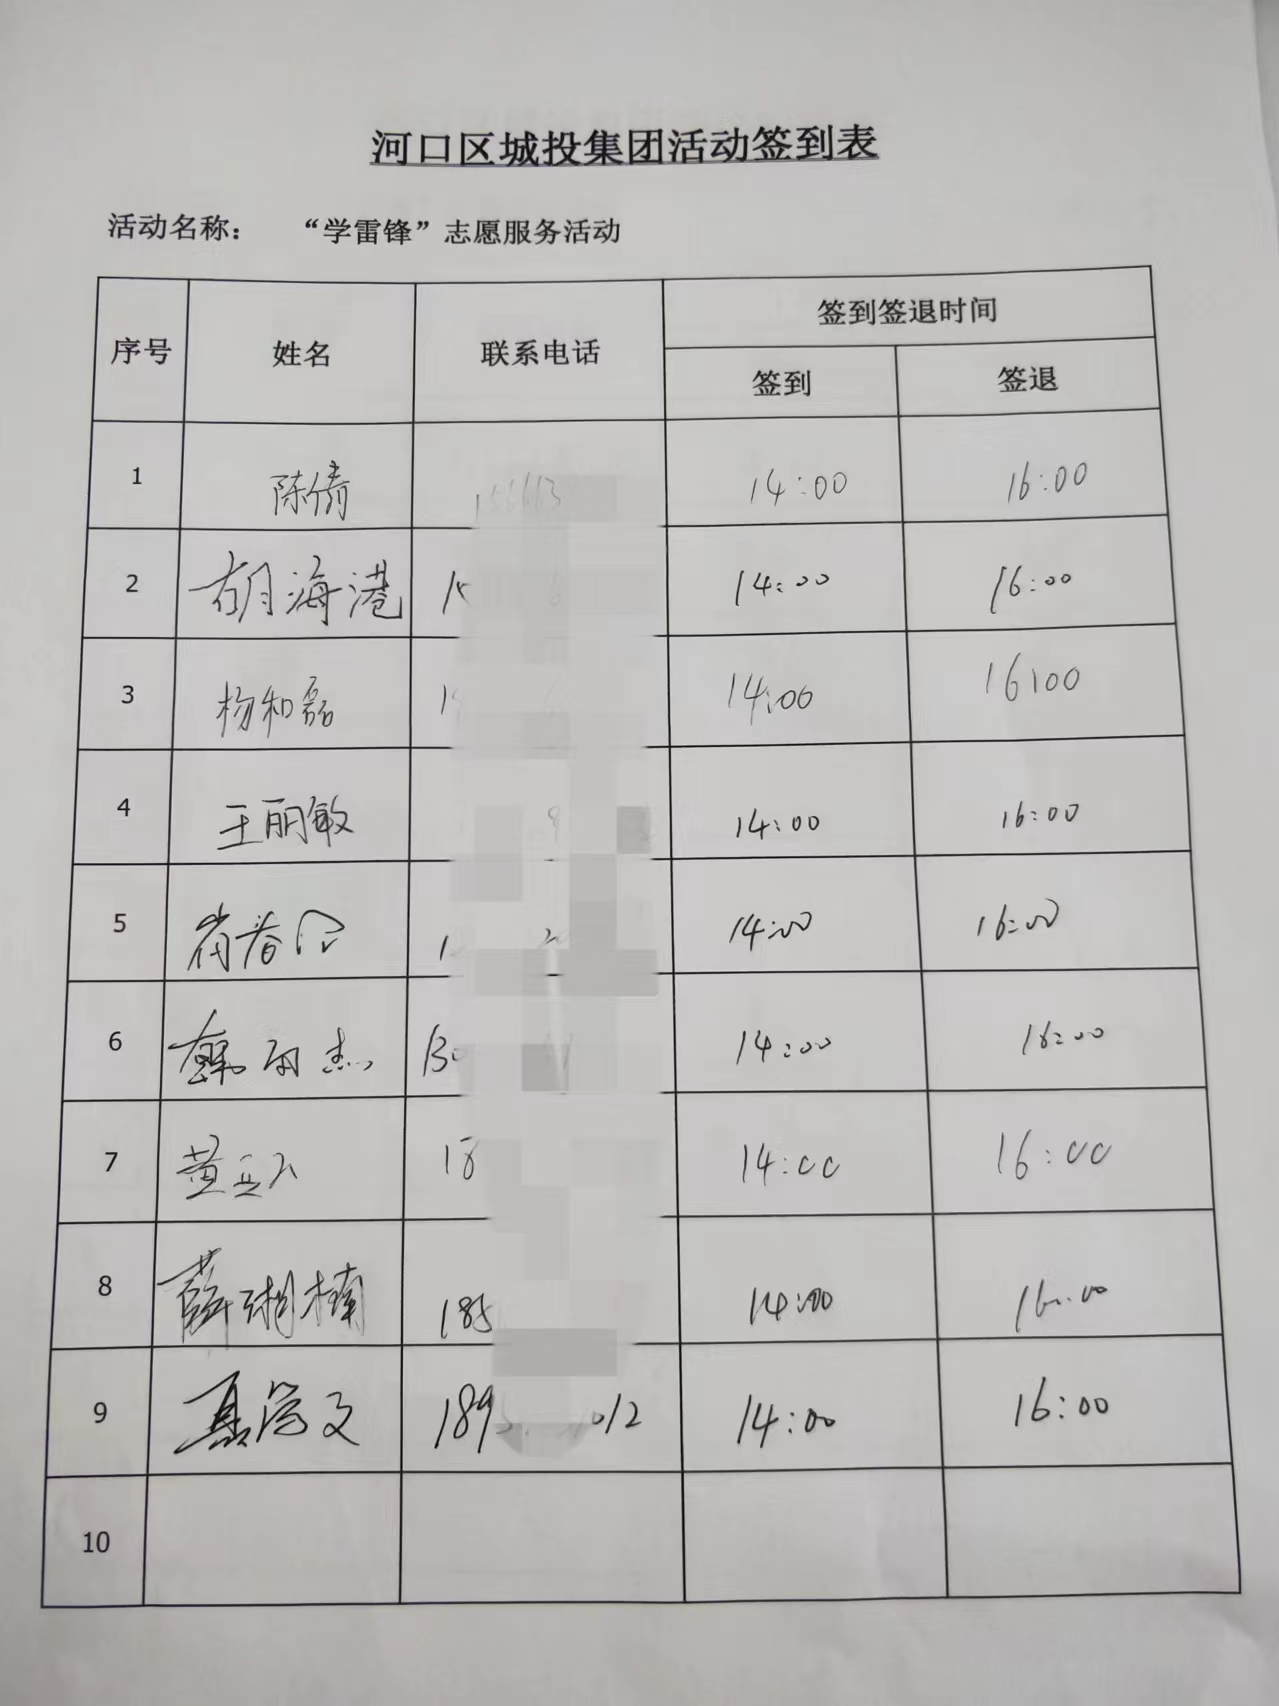 河口区城投集团活动签到表
活动名称： “学雷锋”志愿服务活动
序号 姓名 联系电话 签到签退时间
签到 签退
1 陈倩 156613 14:00 16:00
2 胡海港 14:00 16:00
3 杨和磊 14:00 16:00
4 王丽敏 14:00 16:00
5 14:00 16:00
6 130 14:00 16:00
7 黄 18 14:00 16:00
8 薛湘楠 185 14:00 16:00
9 文 189 012 14:00 16:00
10